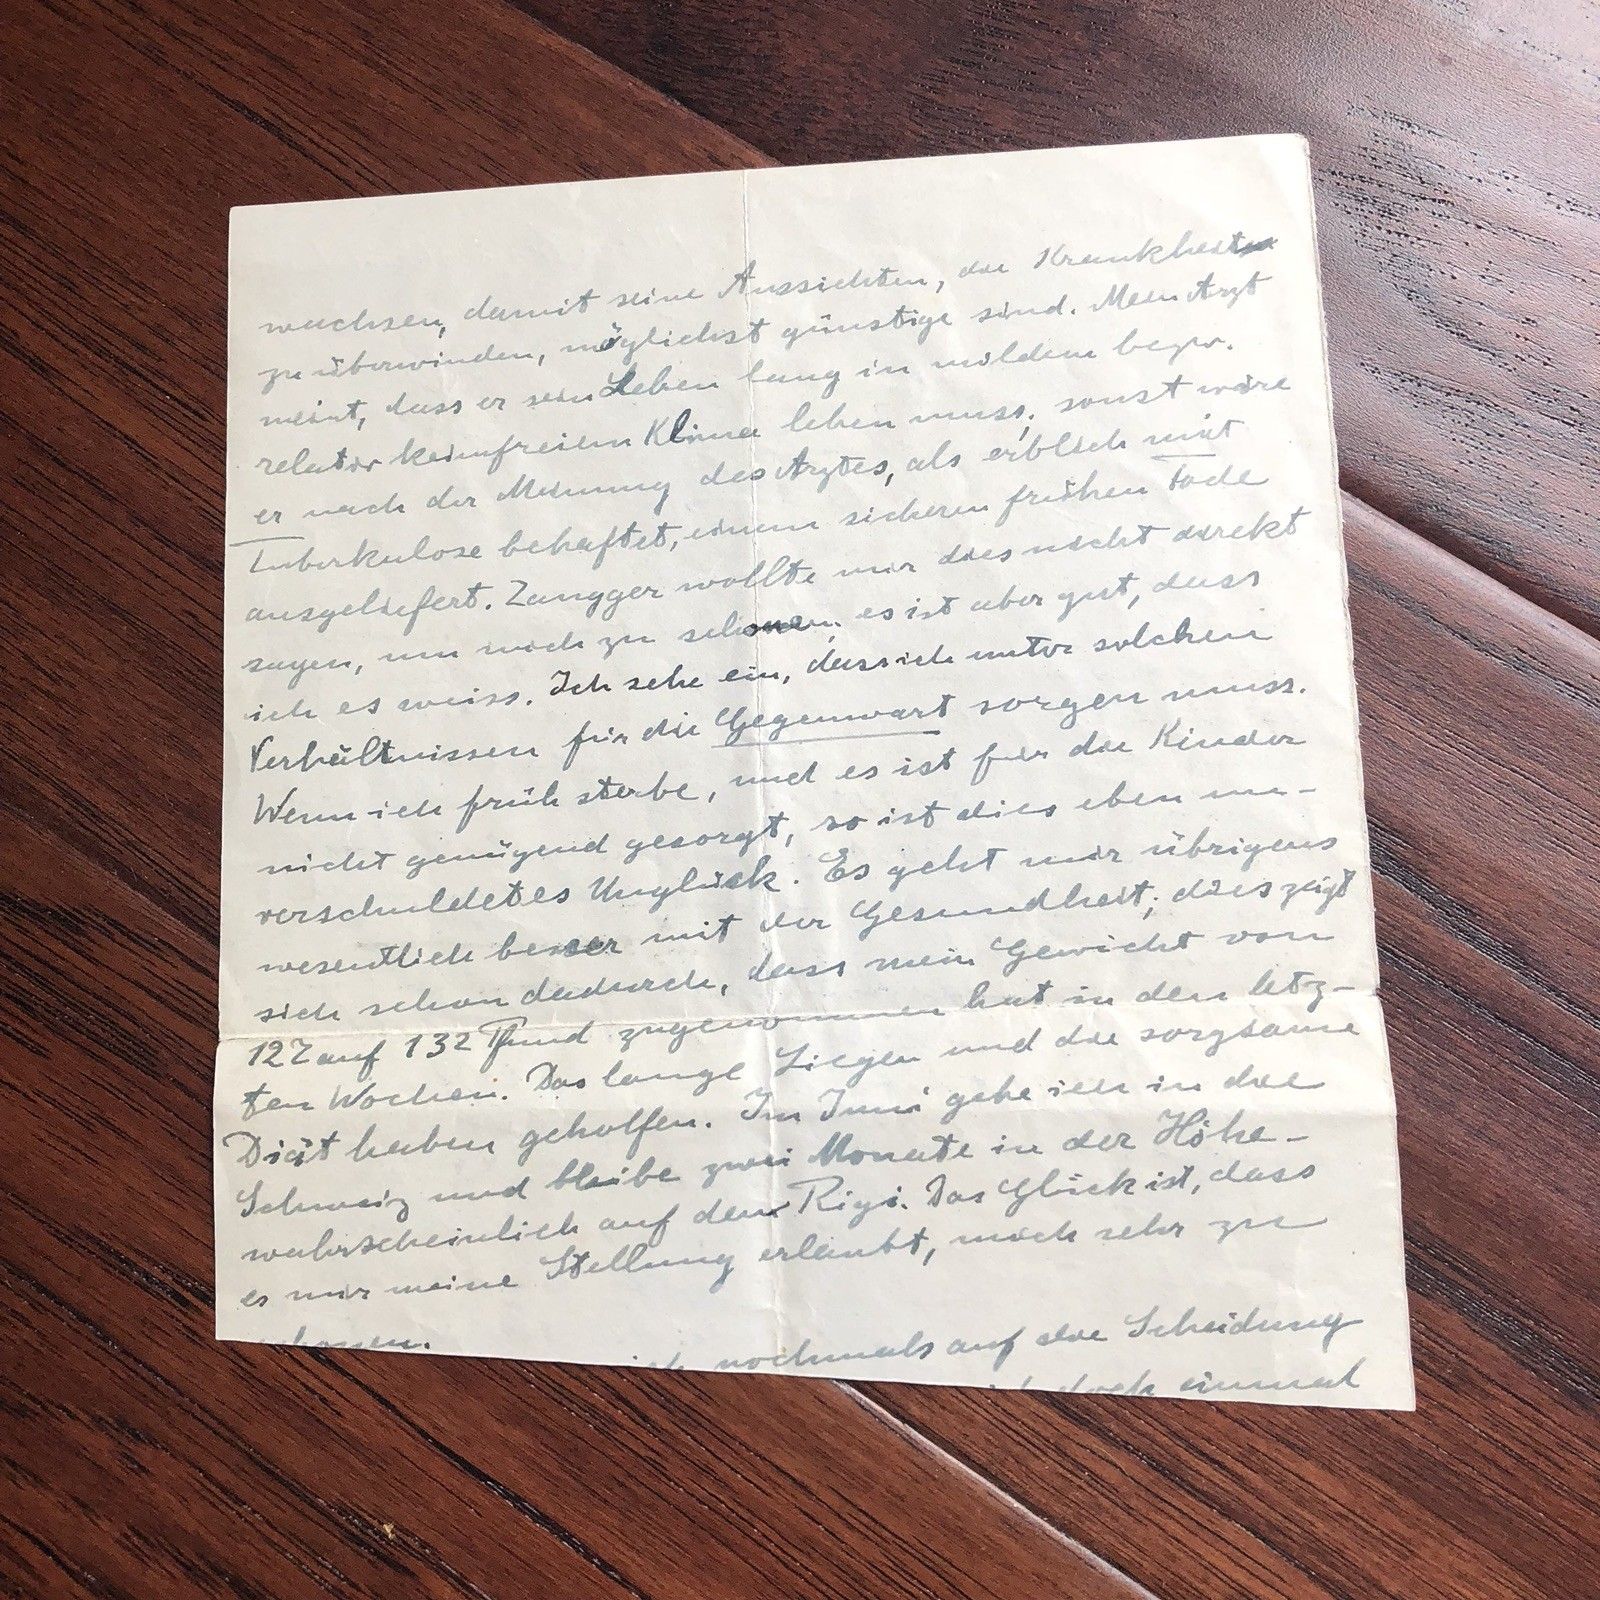 wachsen, damit seine Aussichten, die Krankheit
zu überwinden, möglichst günstige sind. Mein Arzt
meint, dass er sein Leben lang in mildem bezw.
relativ keimfreiem Klima leben muss, sonst wäre
er nach der Meinung des Arztes, als erblich mit
Tuberkulose behaftet, einem sicheren frühen Tode
ausgeliefert. Zangger wollte mir dies nicht direkt
sagen, um mich zu schonen, es ist aber gut, dass
ich es weiss. Ich sehe ein, dass ich unter solchen
Verhältnissen für die Gegenwart sorgen muss.
Wenn ich früh sterbe, und es ist für die Kinder
nicht genügend gesorgt, so ist dies eben un-
verschuldetes Unglück. Es geht mir übrigens
wesentlich besser mit der Gesundheit; dies zeigt
sich schon dadurch, dass mein Gewicht von
127 auf 132 Pfund zugenommen hat in den letz-
ten Wochen. Das lange Liegen und die sorgsame
Diät haben geholfen. Im Juni gehe ich in die
Schweiz und bleibe zwei Monate in der Höhe -
wahrscheinlich auf dem Rigi. Das Glück ist, dass
es mir meine Stellung erlaubt, mich sehr zu
nochmals auf die Scheidung
doch einmal